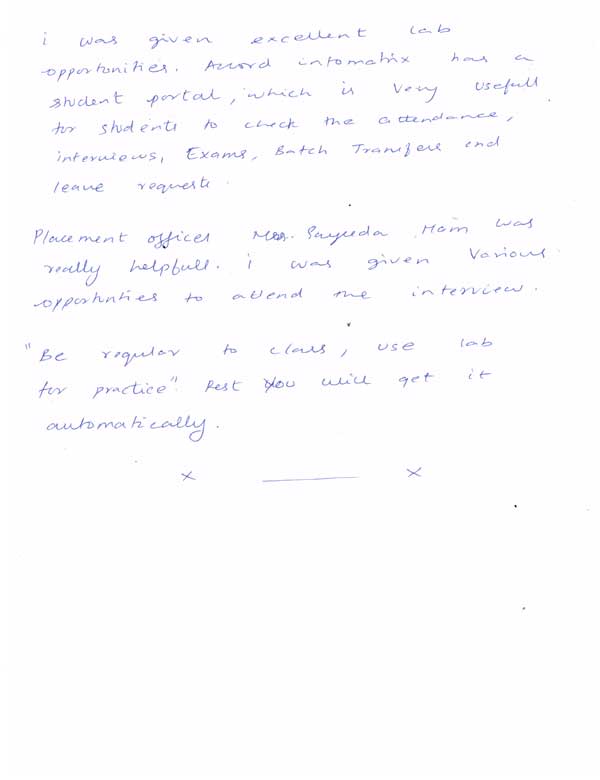 i was given excellent lab
opportunities. Accord infomatrix has a
student portal, which is very usefull
for students to check the attendance,
interviews, Exams, Batch Transfers and
leave requests.
Placement officer Mrs. Sayeeda Mam was
really helpfull. i was given various
opportunities to attend the interview.
"Be regular to class, use lab
for practice". Rest you will get it
automatically.
x ——— x